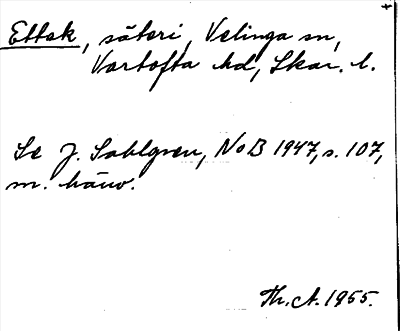 Ettak, säteri, Velinga sn,
Vartofta hd, Skar. l.
Se J. Sahlgren, NoB 1947, s. 107,
m. hänv.
Th. A. 1955.